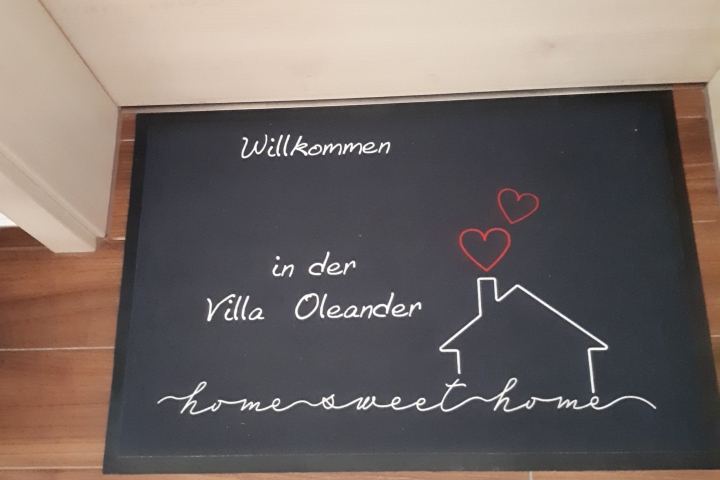 Willkommen
in der
Villa Oleander
home sweet home